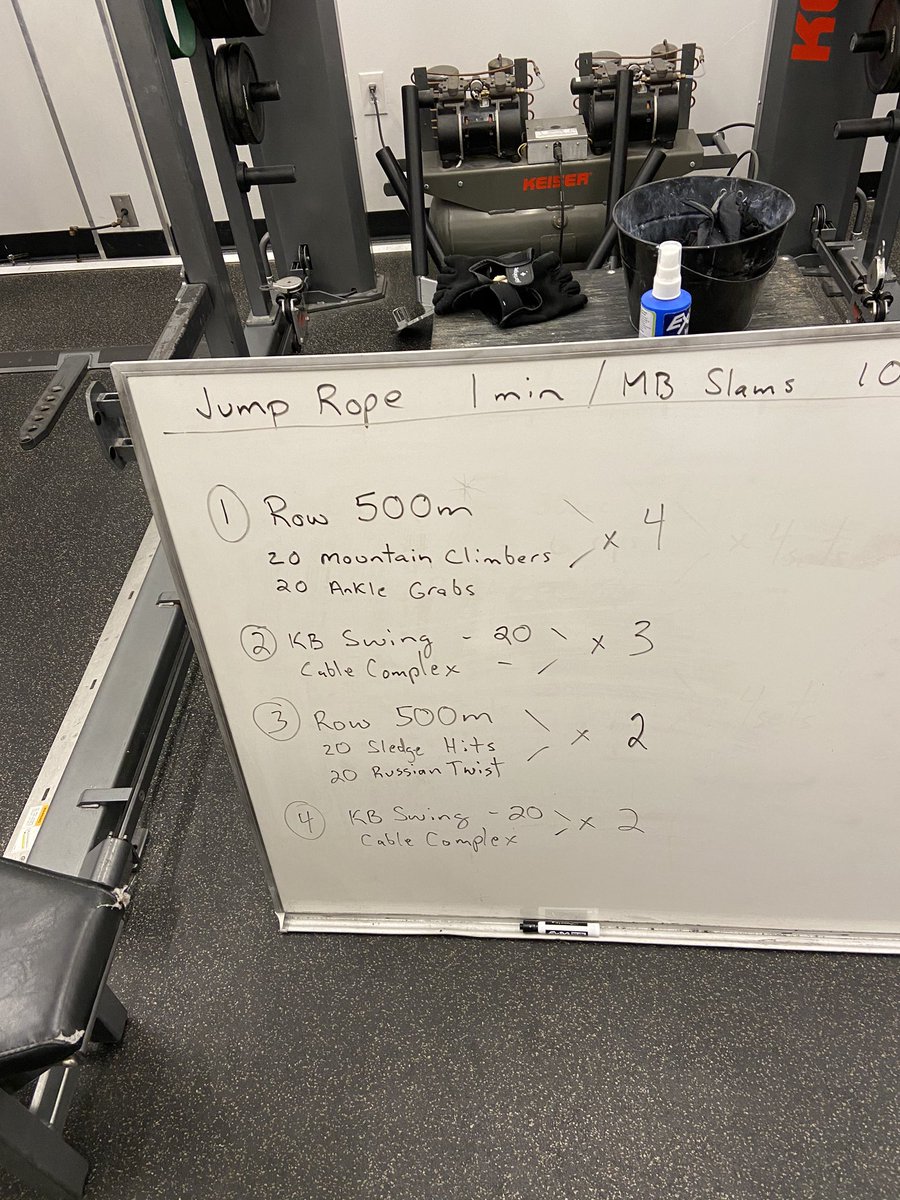 KE
KEISER
EX
Jump Rope 1 min / MB Slams 10
① Row 500m
20 Mountain Climbers × 4
20 Ankle Grabs
② KB Swing - 20 × 3
Cable Complex -
③ Row 500m
20 Sledge Hits × 2
20 Russian Twist
④ KB Swing - 20 × 2
Cable Complex